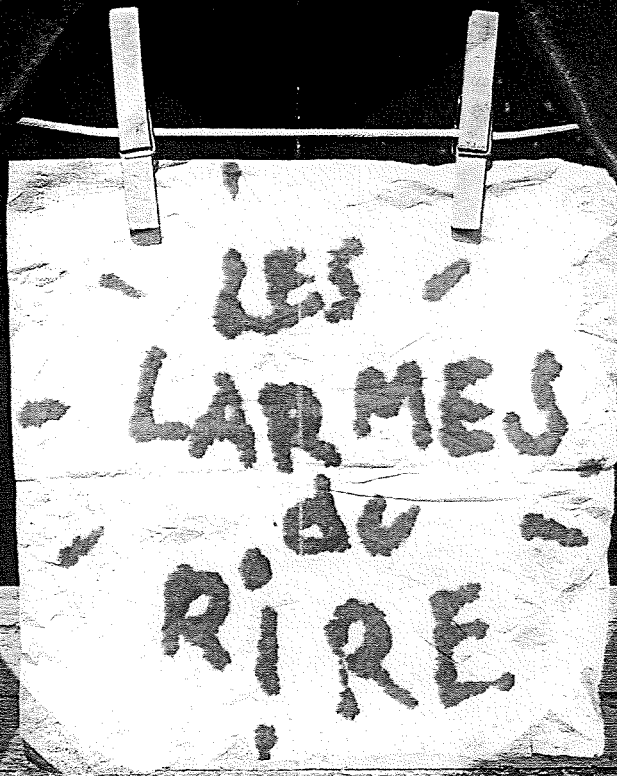 LES
LARMES
du
RiRE